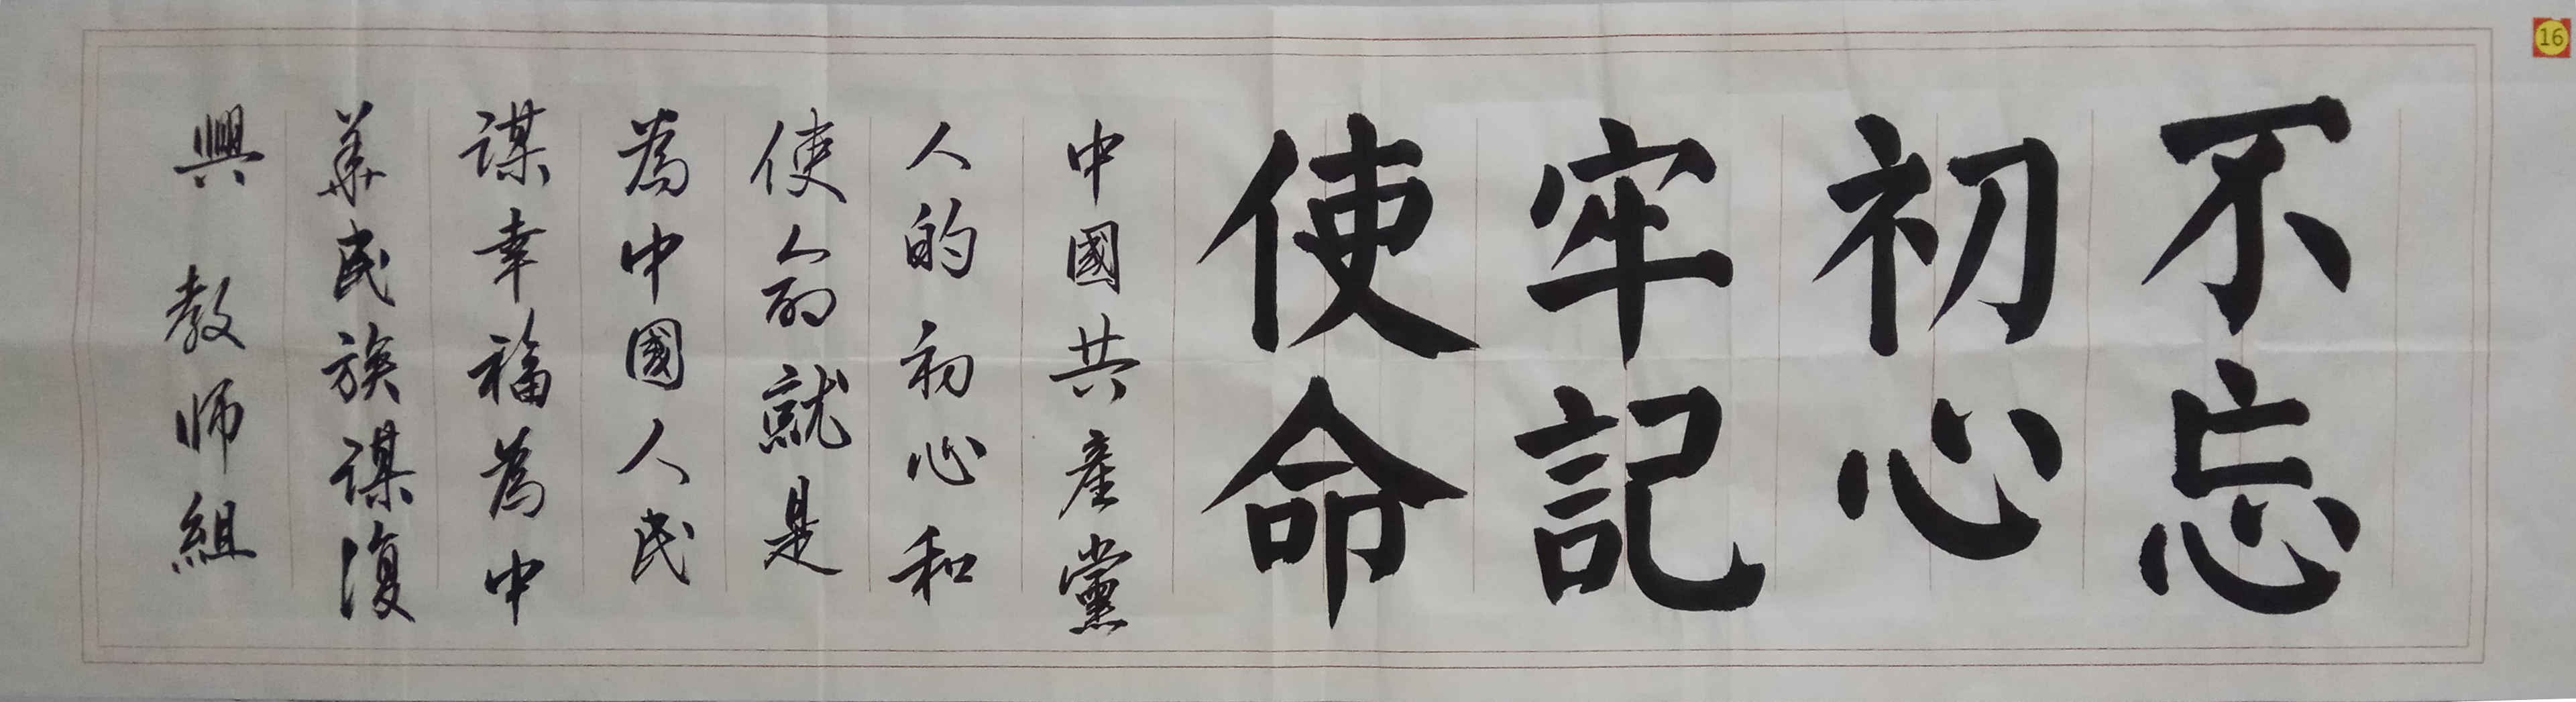 不忘
初心
牢記
使命
中國共產黨
人的初心和
使命就是
為中國人民
謀幸福為中
華民族謀復
興 教师組
16